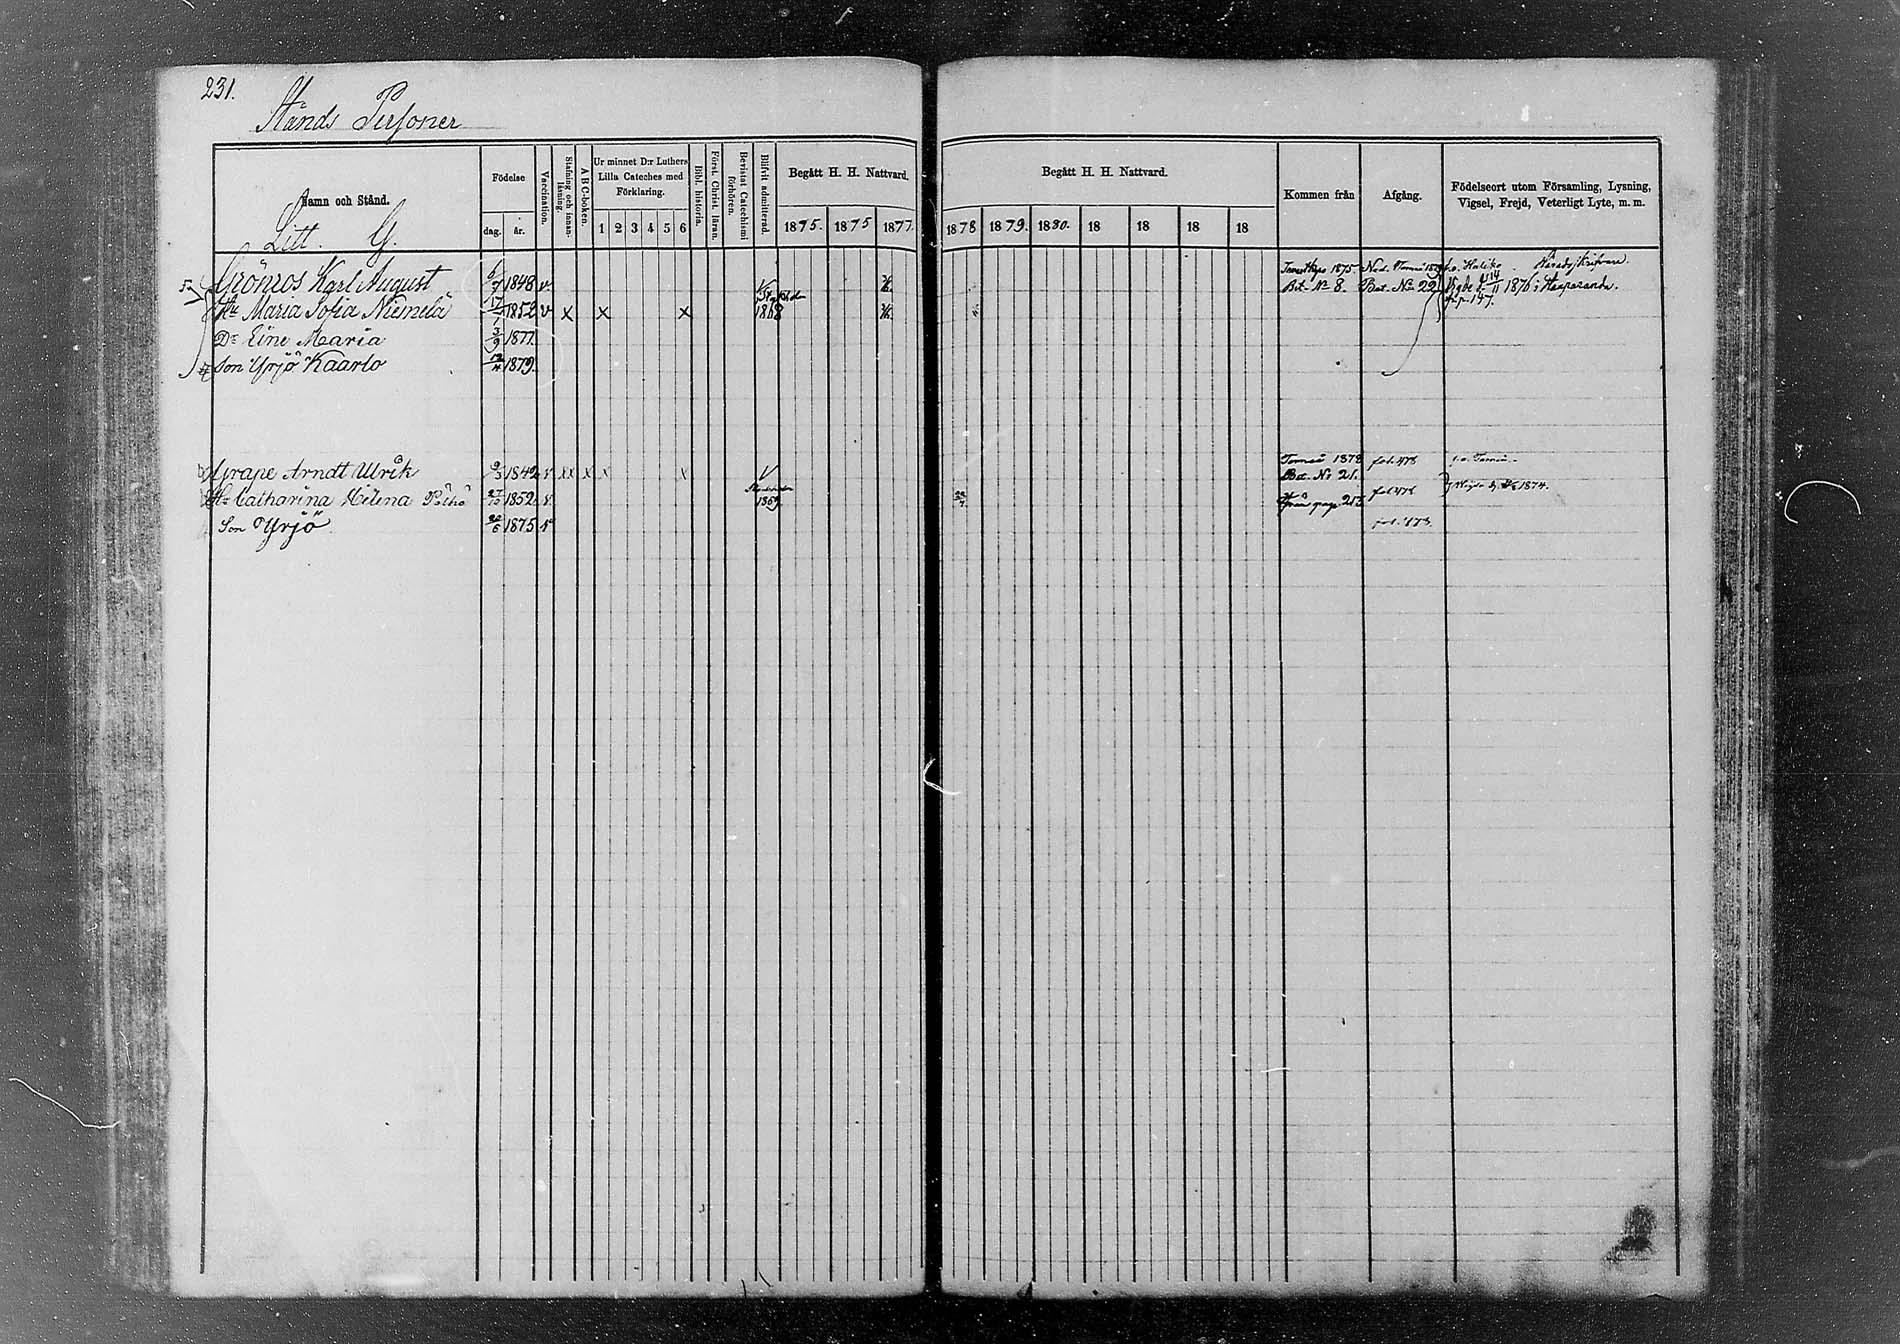 231.
Stånds Personer
Namn och Stånd.
Litt. G.
Födelse
dag. år.
Vaccination.
Stafning och innanläsning.
ABC-boken.
Ur minnet D:r Luthers Lilla Cateches med Förklaring.
1 2 3 4 5 6
Bibl. historia.
Först. Christ. läran.
Bevistat Catechismi förhören.
Blifvit admitterad.
Begått H. H. Nattvard.
1875. 1875 1877.
Begått H. H. Nattvard.
1878 1879. 1880. 18 18 18 18
Kommen från
Afgång.
Födelseort utom Församling, Lysning, Vigsel, Frejd, Veterligt Lyte, m. m.
Grönros Karl August 6/7 1848 v. Bet. No 8. Bet. No 22
Hu Maria Sofia Niemelä 17 1852 v x x x 1868
Dr Eine Maria 3/9 1877.
Son Yrjö Kaarlo 12/4 1879.
1876 i Haaparanta.
p. 147.
Grape Arndt Ulrik 9/3 1842 v xx x x x v Torneå 1878 Bet. No 21.
Hu Catharina Helena 27/10 1852. v. 1869. från pag. 213 1874.
Son Yrjö 22/6 1875 v